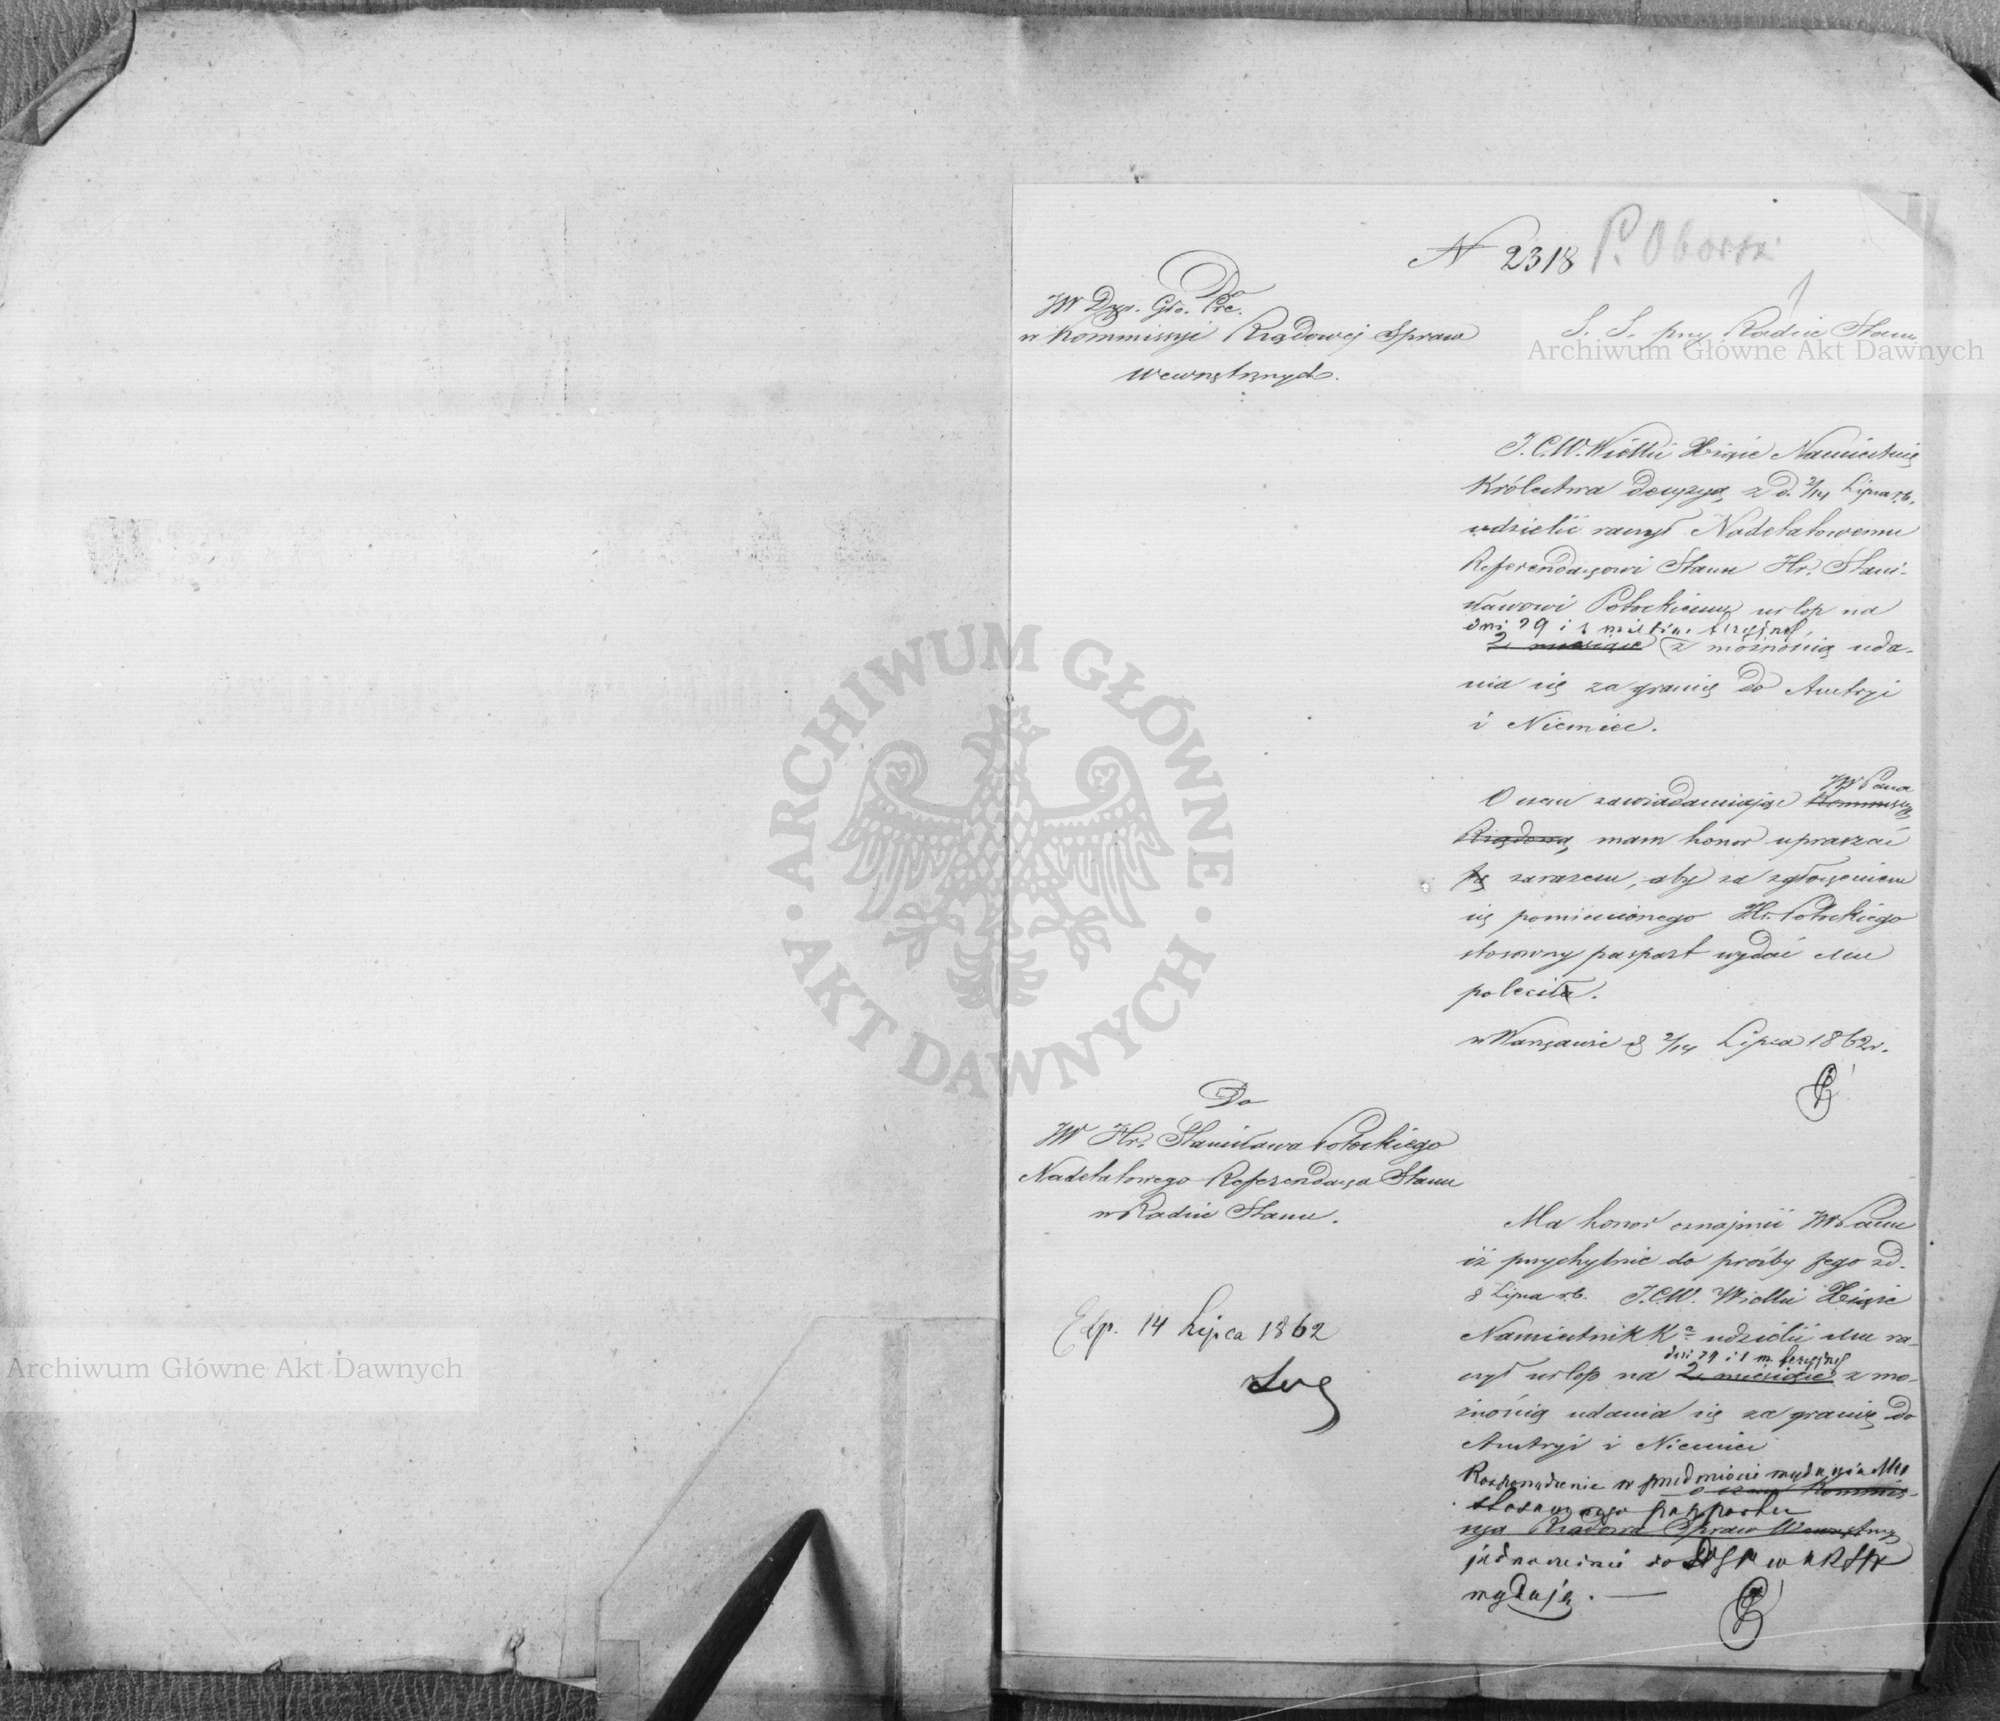 N 2318 P. Oborsk
Do
JW Dyr. Głó. Prez.
w Kommissyi Rządowej Spraw
Wewnętrznych.
S. S. przy Radzie Stanu
J.C.W. Wielki Xiąże Namiestnik
Królestwa decyzyą z d. 2/14 Lipca r.b.
udzielić raczył Nadetatowemu
Referendarzowi Stanu Hr. Stani-
sławowi Potockiemu urlop na
dni 29 i 1 miesiąc
2 miesiące z możnością uda-
nia się za granicę do Austryi
i Niemiec.
JW Pana
O czem zawiadamiając Kommissyą
Rządową, mam honor upraszać
Ją zarazem, aby za zgłoszeniem
się pomienionego Hr. Potockiego
stosowny paszport wydać Mu
poleciła.
w Warszawie d 2/14 Lipca 1862 r.
Do
JW Hr. Stanisława Potockiego
Nadetatowego Referendarza Stanu
w Radzie Stanu.
Exp. 14 Lipca 1862
Ma honor oznajmić JW Panu
iż przychylnie do prośby Jego z d.
8 Lipca r.b. J.C.W. Wielki Xiąże
Namiestnik K udzielić Mu ra-
dni 29 i 1 m.
czył urlop na 2 miesiące z mo-
żnością udania się za granicę do
Austryi i Niemiec
Rozporządzenie w przedmiocie wydania Mu
o czem Kommis-
stosownego paszportu
sya Rządowa Spraw Wewnętrz
jednocześnie do DGP w KRSW
wydaję.
Archiwum Główne Akt Dawnych
Archiwum Główne Akt Dawnych
ARCHIWUM GŁÓWNE · AKT DAWNYCH ·